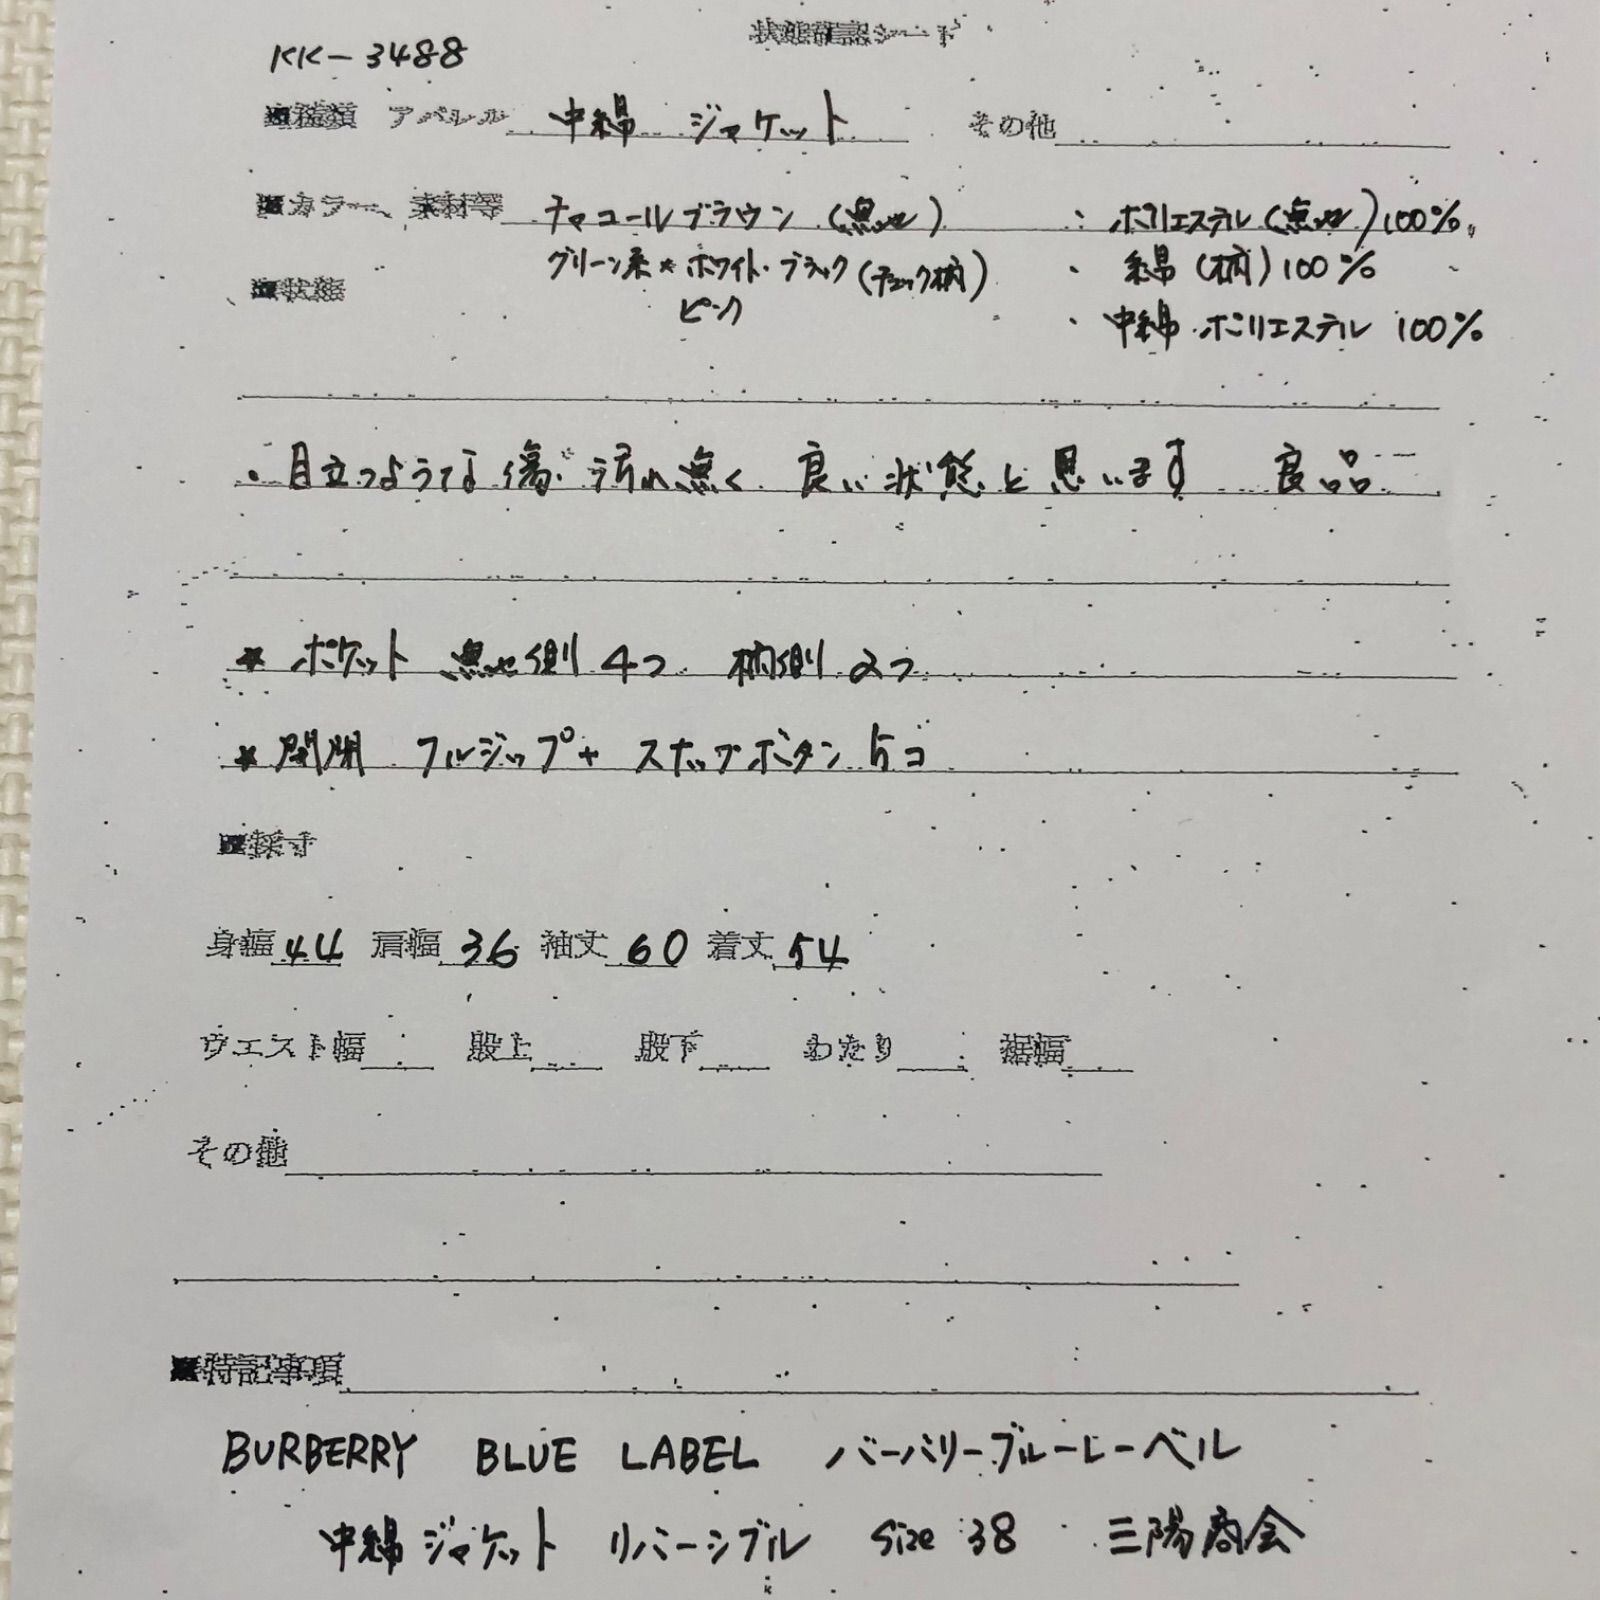 状態確認シート
KK-3488
■種類 アパレル 中綿 ジャケット その他
■カラー、素材等 チャコールブラウン (無地) : ポリエステル (無地) 100%
グリーン系*ホワイト・ブラック (チェック柄) ・ 綿 (柄) 100%
■状態 ピンク ・ 中綿 ポリエステル 100%
・目立つような傷 汚れ無く 良い状態と思います 良品
* ポケット 無地側 4つ 柄側 2つ
* 開閉 フルジップ+ スナップボタン 5コ
■採寸
身幅 44 肩幅 36 袖丈 60 着丈 54
ウエスト幅 股上 股下 わたり 裾幅
その他
■特記事項
BURBERRY BLUE LABEL バーバリーブルーレーベル
中綿ジャケット リバーシブル Size 38 三陽商会